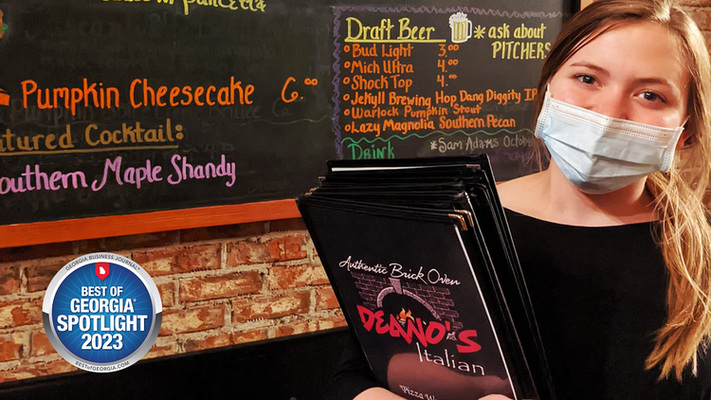 Pumpkin Cheesecake 6.00
Featured Cocktail:
Southern Maple Shandy
Draft Beer
*ask about
PITCHERS
Bud Light 3.00
Mich Ultra 4.00
Shock Top 4.00
Jekyll Brewing Hop Dang Diggity IP
Warlock Pumpkin Stout
Lazy Magnolia Southern Pecan
*Sam Adams Octo
Drink
Authentic Brick Oven
DEANO'S
Italian
Pizza
GEORGIA BUSINESS JOURNAL
BEST OF
GEORGIA®
SPOTLIGHT
2023
BESTOFGEORGIA.COM